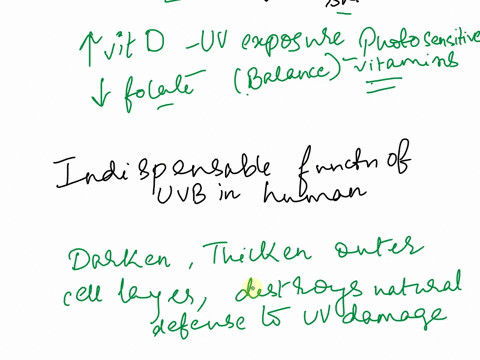 ↑ vit D - UV exposure Photosensitive
↓ folate (Balance) - vitamins
Indispensable functn of
UVB in human
Darken, Thicken outer
cell layer, destroys natural
defense to UV damage